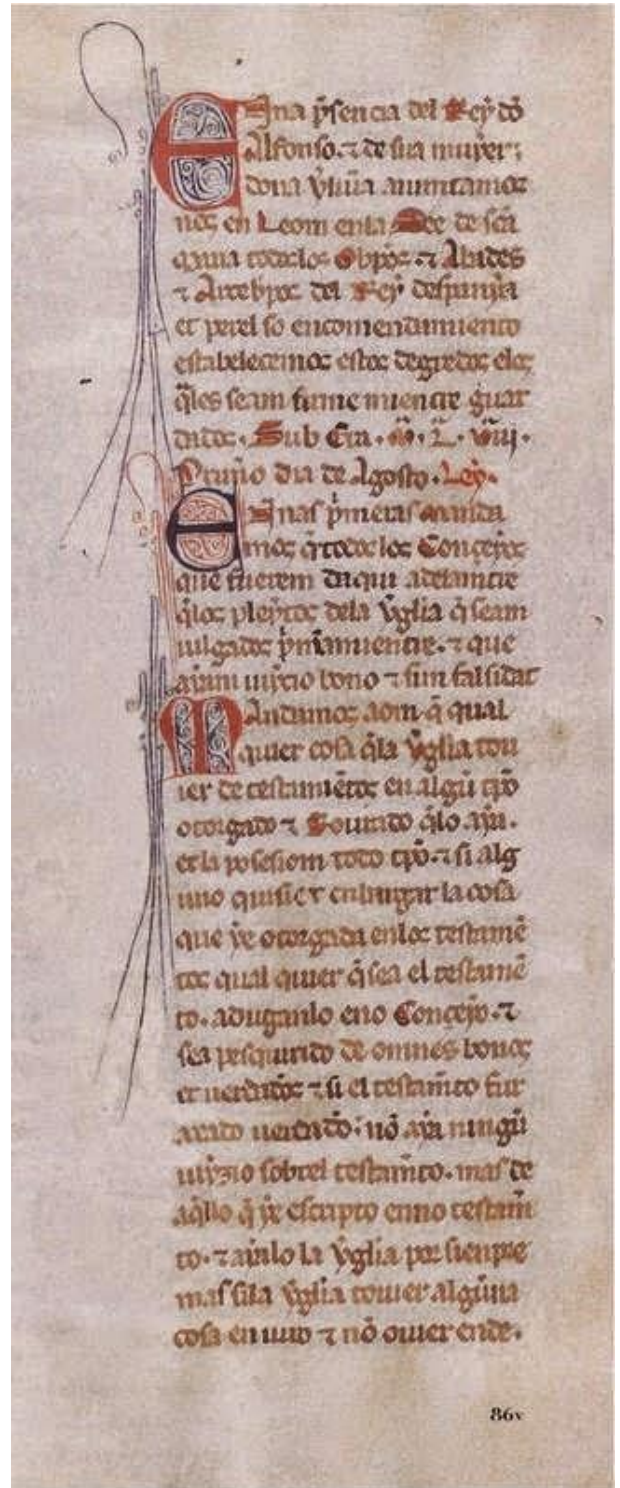 Ena p̃sencia del Rey dõ
Alfonso. ⁊ de sua muyer;
dona
nos en Leom enla See de sc̃a
todolos Obp̃os. ⁊ Abades
⁊ Arcebp̃os del Rey despanya
et perel so encomendamiento
estabelecemos estos degredos elos
q̃les seam firme mientre guar
dados. Sub Era. M. L. VIII.
Primo dia de Agosto. Ley.
Enas p̃meras manda
mos q̃ todos los Conçeyos
que fuerem daqui adelantre
q̃los pleytos dela ỹglia q̃ seam
iulgados mientre. ⁊ que
ayam iuyzio bono ⁊ sim falsidat
Mandamos q̃ qual
quier cosa q̃la ỹglia tou
ier de testamẽtos en algũ tp̃o
otorgado ⁊ Rourado q̃lo aya.
et la posesiom todo tp̃o. ⁊ si alg
uno quisier enbargar la cosa
que ye otorgada enlos testamẽ
tos qual quier q̃ sea el testamẽ
to. aduganlo eno Conçeyo. ⁊
sea pesquirido de omnes bonos
et ⁊ si el testam̃to fur
axado nõ aya ningũ
iuyzio sobrel testam̃to. mas de
aq̃llo q̃ ye escripto enno testam̃
to. ⁊ ayalo la ỹglia por sienpre
mas sila ỹglia touier algũna
cosa en iuro ⁊ nõ ouier ende.
86v